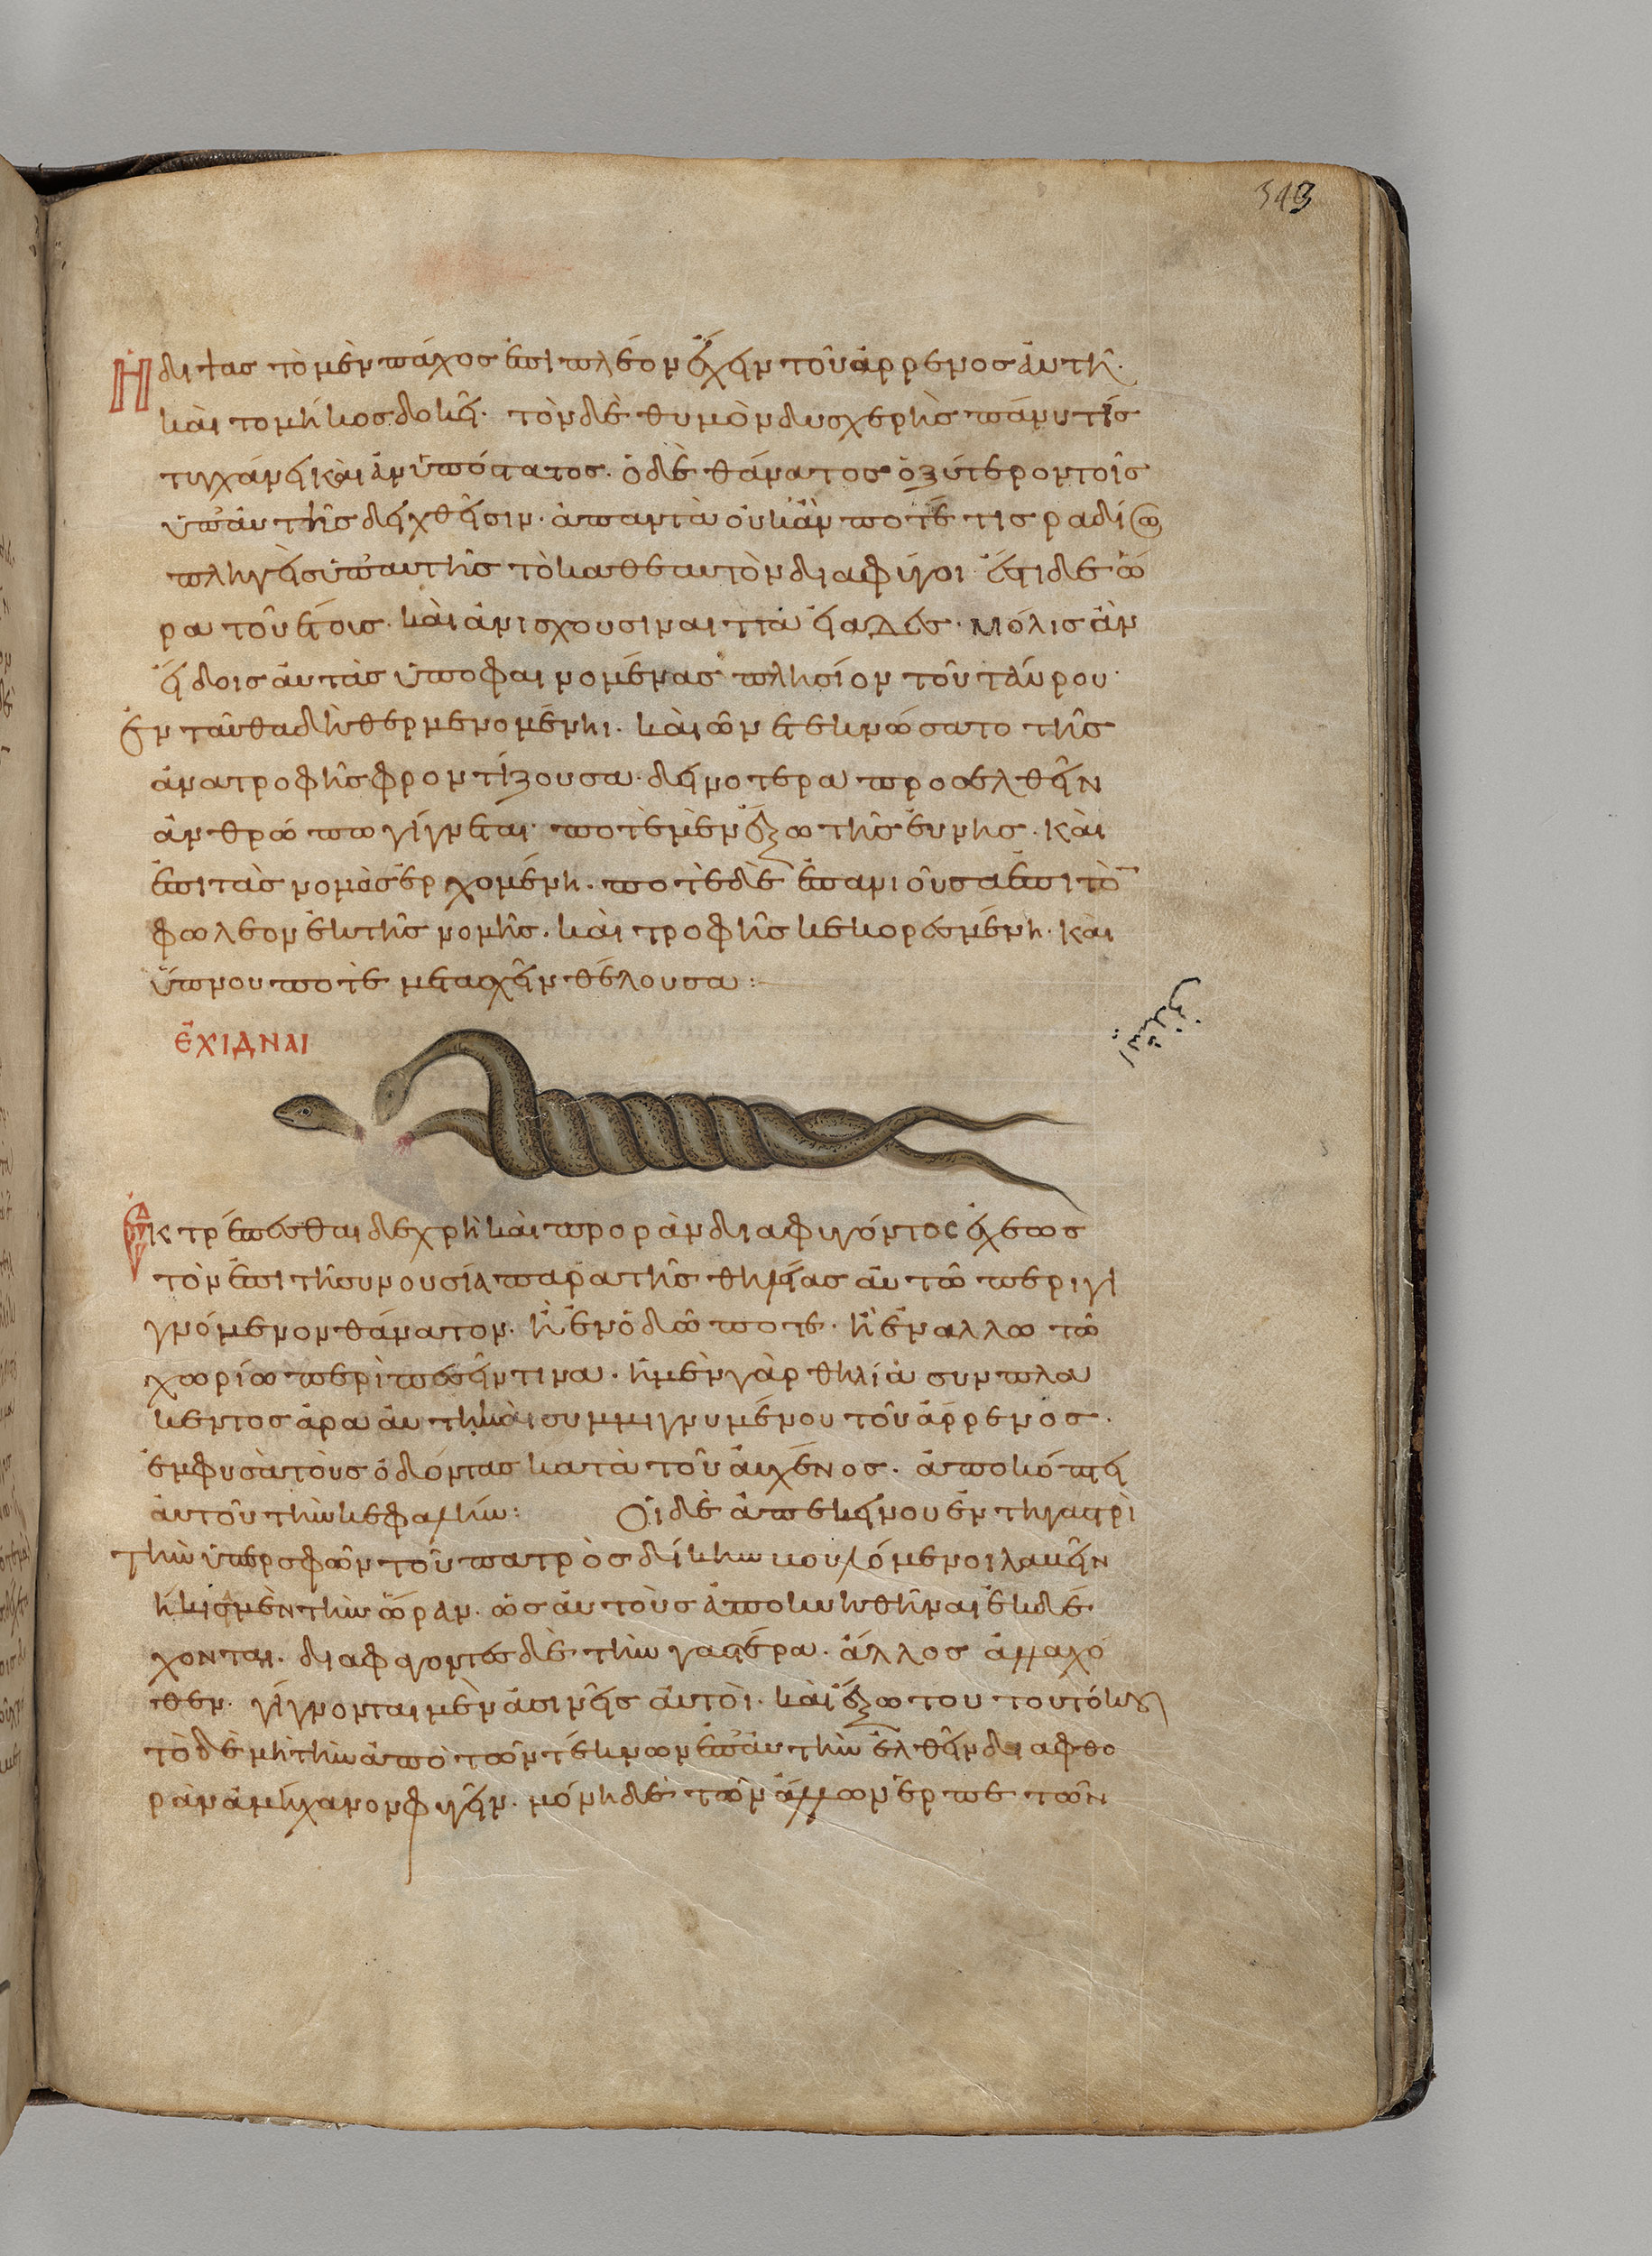 Ἡ διτας τὸ μὲν πάχος ἐπιπλέον ἔχειν τοῦ ἄρρενος αὐτὴ·
καὶ το μῆκος δοκεῖ· τὸν δὲ θυμὸν δυσχερὴς πάνυ τίς
τυγχάνει καὶ ἀνϋπόστατος. ὁ δὲ θάνατος ὀξύτερον τοῖς
ὑπ' αὐτῆς δειχθεῖσιν. ἀπαντὰ οὐκ ἂν ποτέ τις ραδίως
πληγεὶς ὑπ' αυτῆς τὸ καθ εαυτὸν διαφύγοι ἔστι δε ὥ
ρα τοῦ ἔτους. καὶ ἀνισχουσιν αι πλειάδες. μόλις ἂν
εἴδοις αὐτὰς ὑποφαινομένας πλησίον τοῦ ταύρου·
ἐνταῦθα δὴ θερμενομένηι. καὶ ὧν ετεκνώσατο τῆς
ἀνατροφῆς φροντίζουσα. δεινοτερα προσελθεῖν
ἀνθρώπω γίγνεται· ποτὲ μὲν ἔξω τῆς εὐνης. καὶ
ἐπι τὰς νομὰς ἐρχομένη. ποτὲ δὲ ἐπανιοῦσα ἐπι τὸ
φωλεον ἐκ τῆς νομῆς. καὶ τροφῆς κεκορεσμένη. καὶ
ὕπνου ποτὲ μετασχεῖν θέλουσα:
ἘΧΙΔΝΑΙ
Ἐκτρέπεσθαι δε χρὴ καὶ προρὰν διαφυγόντος ἔχεως
τὸν ἐπι τῆ συνουσία παρὰ τῆς θηλείας αὐτῶ περιγι
γνόμενον θάνατον. ἢ ἐν ὁδῶ ποτε. ἢ ἐν αλλω τῶ
χωρίω περὶπεσεῖν τινα. ἡ μὲν γὰρ θηλία συνπλα
κεντος ἄρα αὐτη καὶ συμμιγνυμένου τοῦ ἄρρενος.
ἐμφυσὰ τοὺς ὀδόντας κατὰ τοῦ αὐχένος. ἀποκόπτει
αὐτοῦ τὴν κεφαλήν: Οἱ δὲ ἀπ εκείνου ἐν τη γαστρὶ
τὴν ὑπερ σφῶν τοῦ πατρὸς δίκην βουλόμενοι λαβεῖν
ἥκισμὲν τὴν ὥραν. ὡς αὐτοὺς ἀποκυηθῆναι ἐκδέ
χονται. διαφαγοντες δὲ τὴν γαστέρα. ἄλλος ἀλλαχό
θεν. γίγνονται μὲν ἀσινεῖς αὐτοὶ. καὶ ἔξω του τουτόκου
τὸ δὲ μὴ τὴν ἀπὸ τῶν τέκνων ἐπ' αὐτὴν ἐλθεῖν διαφθο
ρὰν ἀμήχανον φυγεῖν. μόνη δὲ τῶν ἄλλων ἑρπετῶν